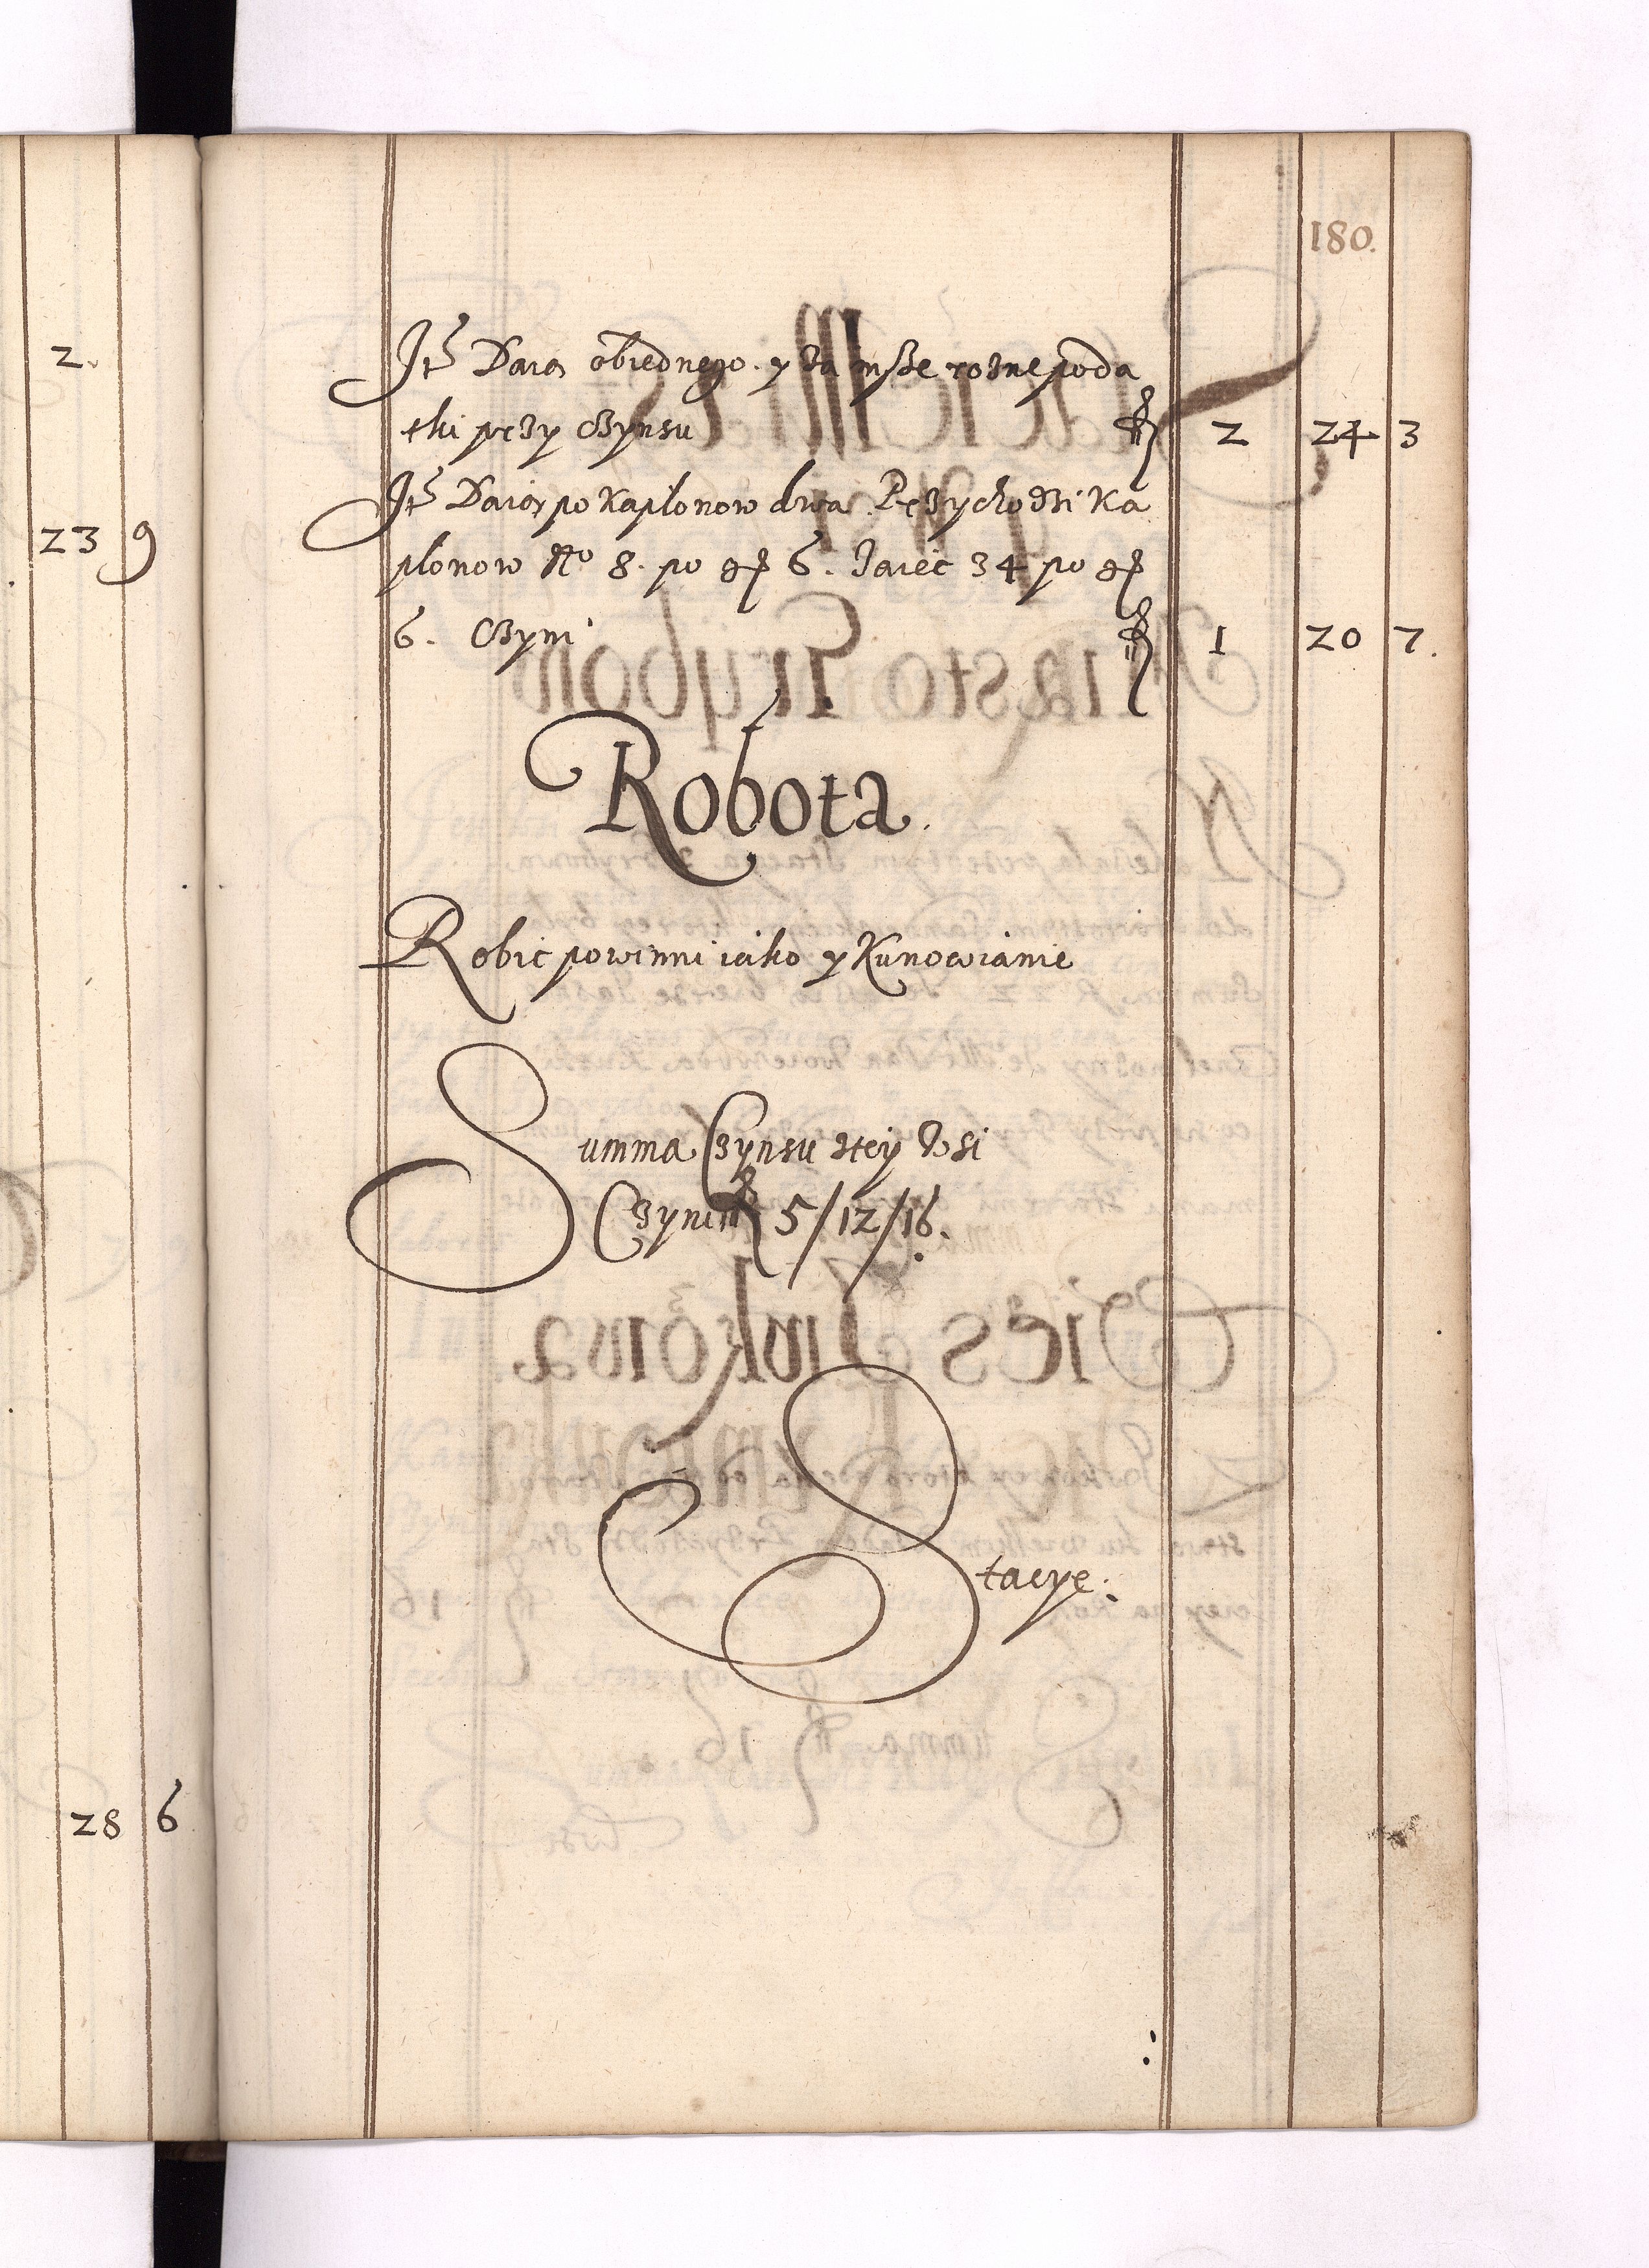 180.
2.
23 9
28 6
Itē Daią obiednego. y za insze rozne poda
tki przy Czynsu 2 24 3
Itē Daią po Kapłonow dwa. Przychodzi Ka
płonow No 8. po gr 6. Jaiec 34 po gr
6. Czyni 1 20 7.
Robota.
Robic powinni iako y Kunowianie
Summa Czynsu ztey Wsi
Czyni 5/12/16.
Stacye.